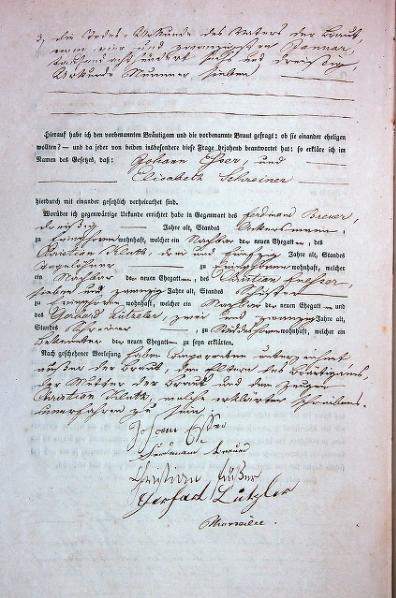 3, die Sterbe-Urkunde des Vaters der Braut
vom vier und zwanzigsten Januar,
tausend achthundert sechs und dreißig,
Urkunde Nummer sieben
Hierauf habe ich den vorbenannten Bräutigam und die vorbenannte Braut gefragt: ob sie einander ehelichen
wollten? — und da jeder von beiden insbesondere diese Frage bejahend beantwortet hat: so erkläre ich im
Namen des Gesetzes, daß: Johann Esser, und
Elisabeth Schreiner
hierdurch mit einander gesetzlich verheirathet sind.
Worüber ich gegenwärtige Urkunde errichtet habe in Gegenwart des Ferdinand Breuer,
dreißig Jahre alt, Standes Ackersmann,
zu wohnhaft, welcher ein Nachbar der neuen Ehegatten, des
Christian drei und fünfzig Jahre alt, Standes
Tagelöhner zu wohnhaft, welcher
ein Nachbar der neuen Ehegatten, des Christian
sieben und zwanzig Jahre alt, Standes
zu wohnhaft, welcher ein Nachbar der neuen Ehegatten — und
des Gerhard Lützler, zwei und zwanzig Jahre alt,
Standes Schreiner, zu wohnhaft, welcher ein
Bekannter der neuen Ehegatten zu seyn erklärten.
Nach geschehener Vorlesung haben Comparenten unterzeichnet
außer der Braut, den Eltern des Bräutigams,
der Mutter der Braut und dem Zeugen
Christian welche erklärten Schreibens-
unerfahren zu sein.
Johann Esser
Ferdinand Breuer
Christian
Gerhard Lützler